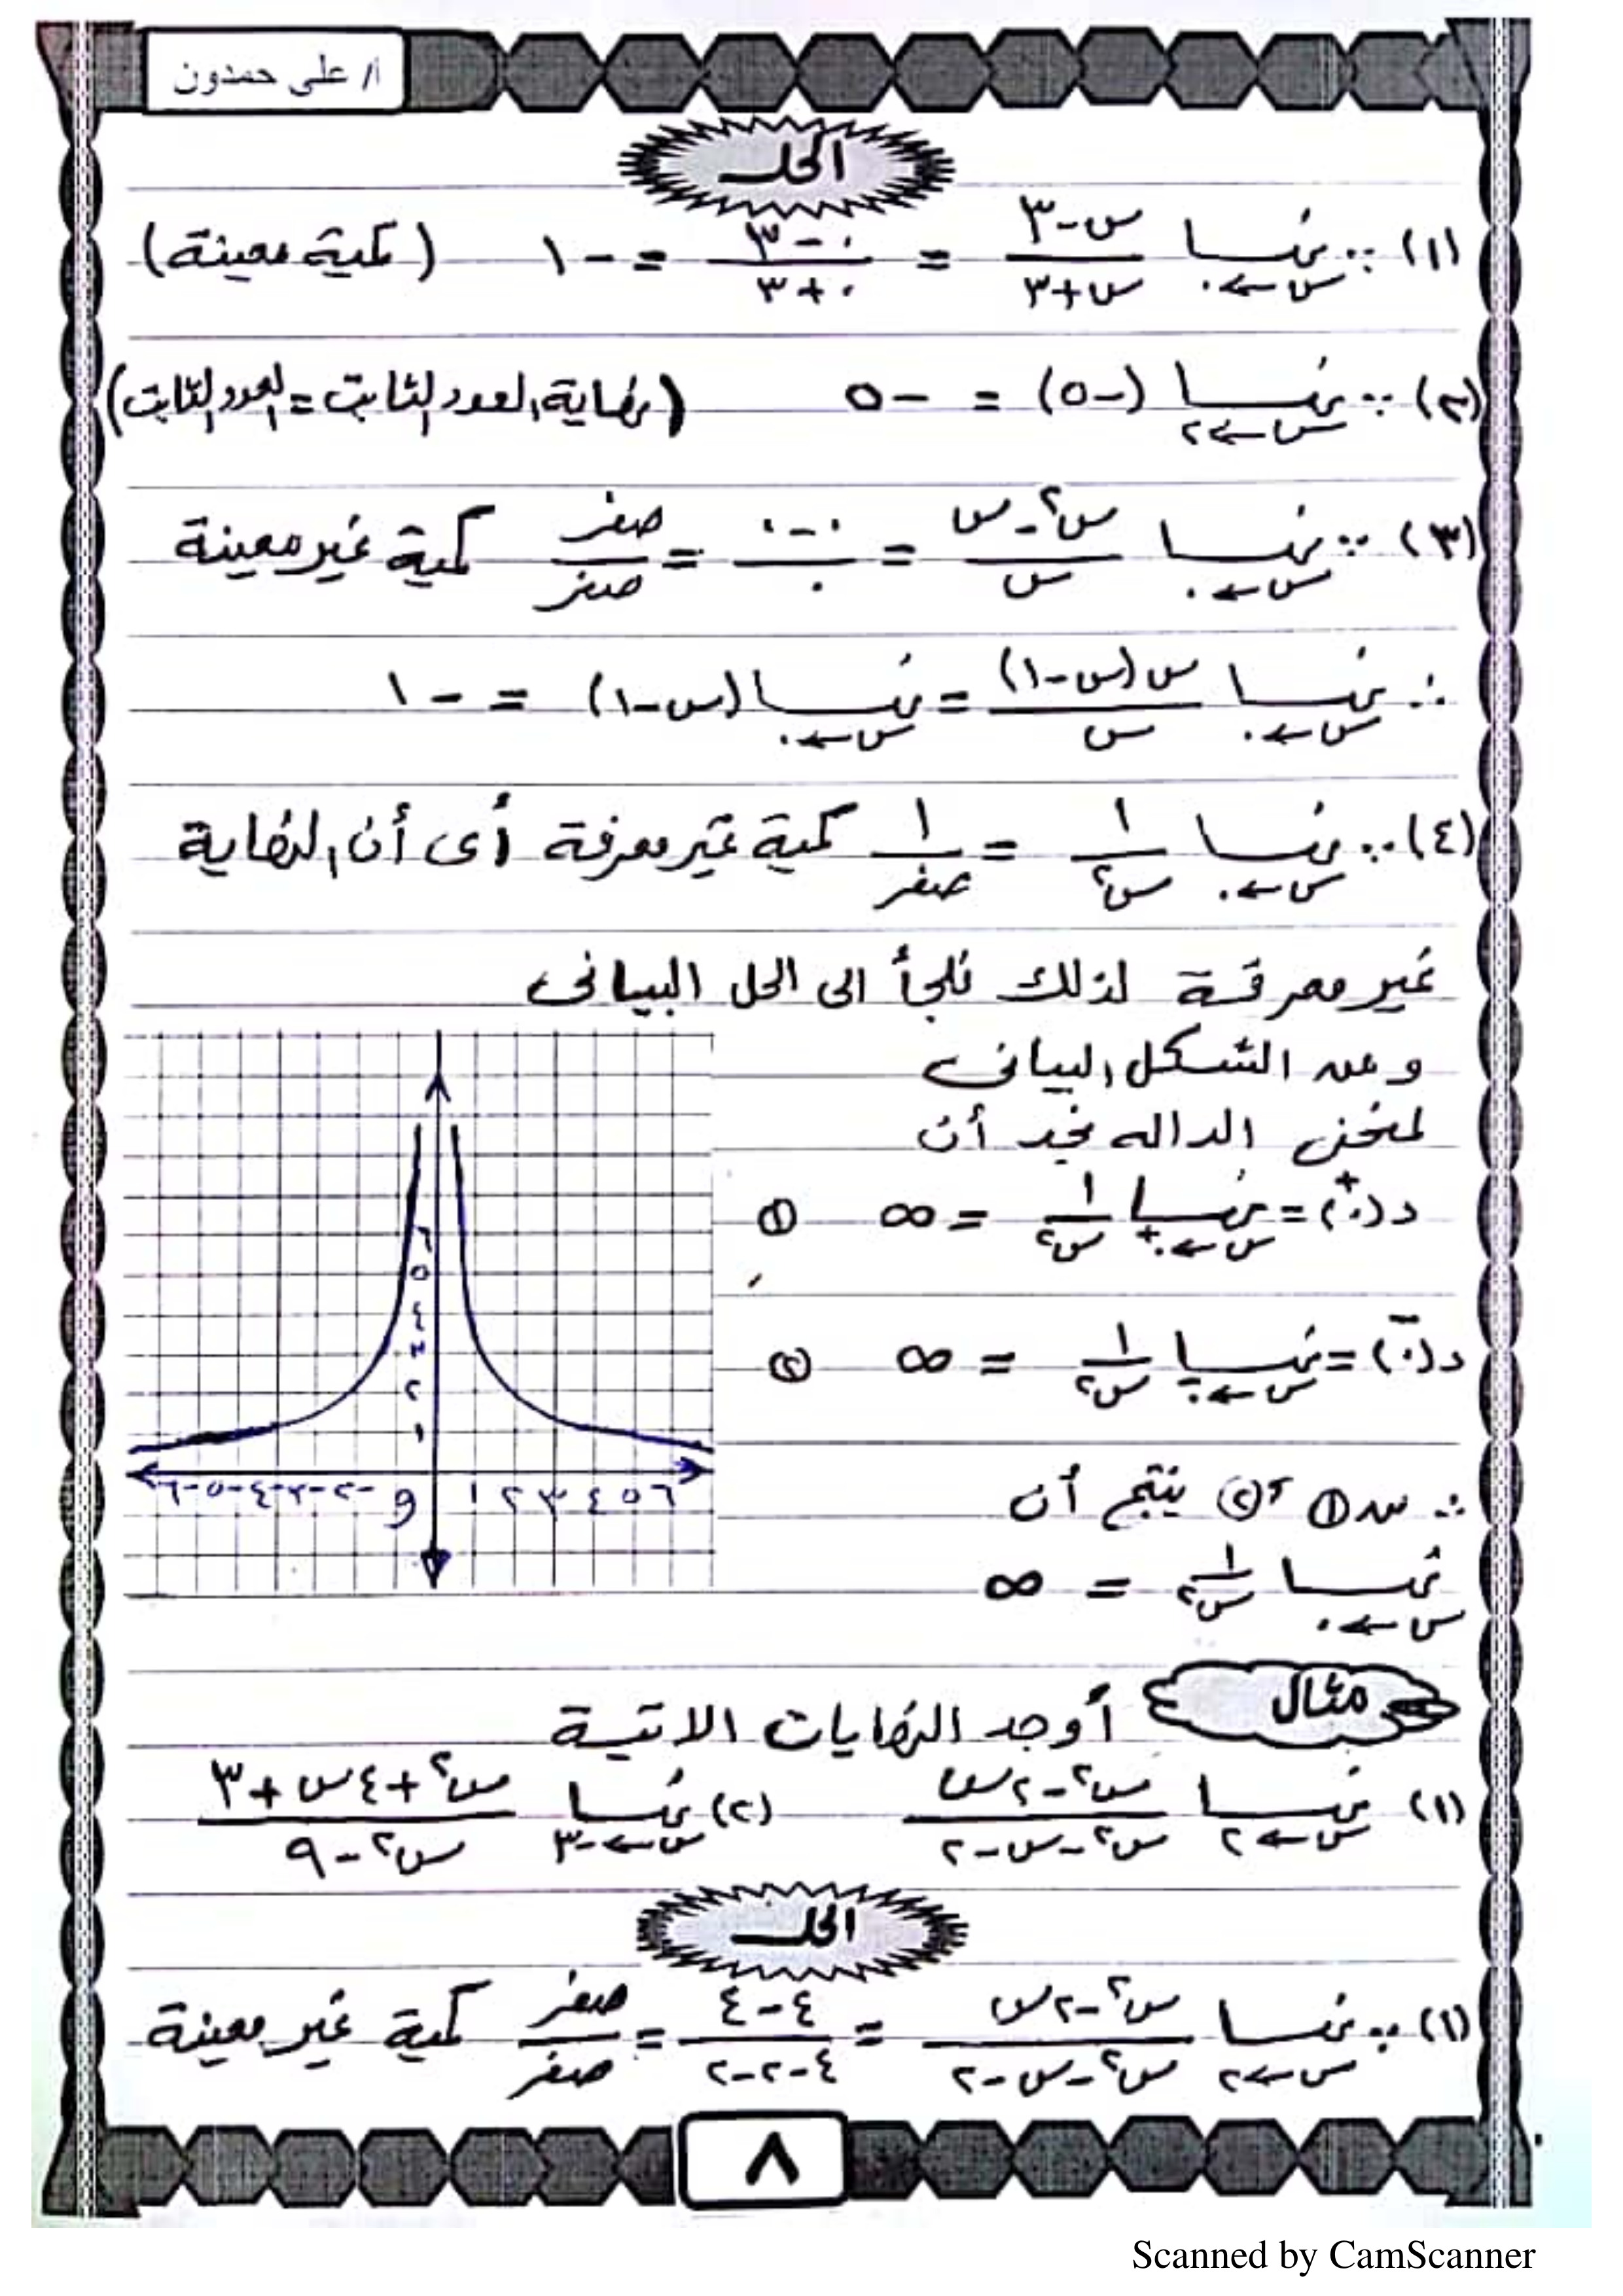 أ/ على حمدون
الحل
(١) ∵ نهــا س←٠ (س-٣)/(س+٣) = (٠-٣)/(٠+٣) = -١ (كمية معينة)
(٢) ∵ نهــا س←٢ (-٥) = -٥ (نهاية العدد الثابت = العدد الثابت)
(٣) ∵ نهــا س←٠ (س٢-س)/س = (٠-٠)/٠ = صفر/صفر كمية غير معينة
∴ نهــا س←٠ س(س-١)/س = نهــا س←٠ (س-١) = -١
(٤) ∵ نهــا س←٠ ١/س٢ = ١/صفر كمية غير معرفة أى أن النهاية
غير معرفة لذلك نلجأ الى الحل البيانى
ومن الشكل البيانى
لمنحنى الداله نجد أن
د(٠+) = نهــا س←٠+ ١/س٢ = ∞ ①
د(٠-) = نهــا س←٠- ١/س٢ = ∞ ②
∴ من ① ، ② ينتج أن
نهــا س←٠ ١/س٢ = ∞
٦
٥
٤
٣
٢
١
-٦ -٥ -٤ -٣ -٢ و ١ ٢ ٣ ٤ ٥ ٦
مثال أوجد النهايات الاتية
(١) نهــا س←٢ (س٢-٢س)/(س٢-س-٢) (٢) نهــا س←-٣ (س٢+٤س+٣)/(س٢-٩)
الحل
(١) ∵ نهــا س←٢ (س٢-٢س)/(س٢-س-٢) = (٤-٤)/(٤-٢-٢) = صفر/صفر كمية غير معينة
٨
Scanned by CamScanner